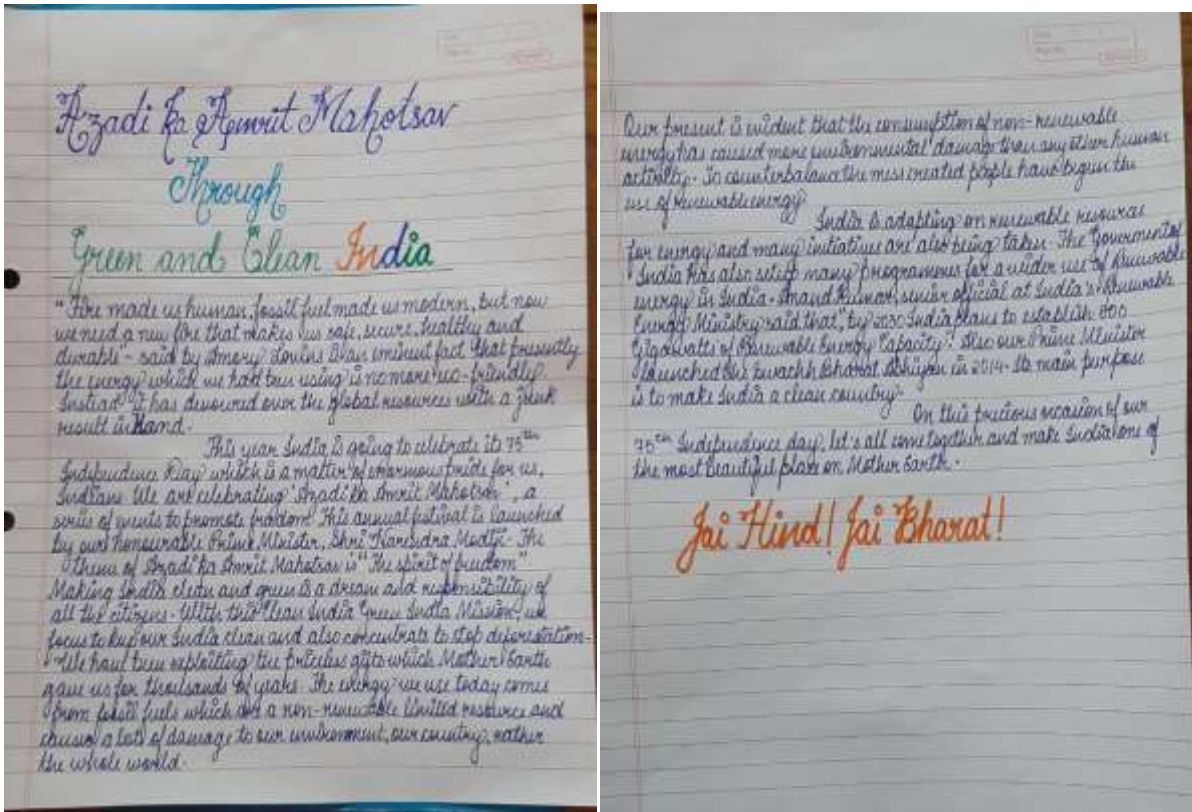 Azadi ka Amrit Mahotsav
Through
Green and Clean India
"Fire made us human, fossil fuel made us modern, but now
we need a new fire that makes us safe, secure, healthy and
durable"- said by Amory Lovins. It is an eminent fact that presently
the energy which we had been using is no more eco-friendly.
Instead it has devoured over the global resources with a
result in hand.
This year India is going to celebrate its 75th
Independence Day which is a matter of enormous pride for us,
Indians. We are celebrating 'Azadi ka Amrit Mahotsav', a
series of events to promote freedom. This annual festival is launched
by our honourable Prime Minister, Shri Narendra Modi. The
theme of Azadi ka Amrit Mahotsav is "The spirit of freedom"
Making India clean and green is a dream and responsibility of
all the citizens. With this Clean India Green India Mission, we
focus to keep our India clean and also concentrate to stop deforestation.
We have been exploiting the priceless gifts which Mother Earth
gave us for thousands of years. The energy we use today comes
from fossil fuels which are a non-renewable limited resource and
causes a lots of damage to our environment, our country, rather
the whole world.
Our present is evident that the consumption of non-renewable
energy has caused more environmental damage than any other human
activity. To counterbalance the mess created people have begun the
use of renewable energy.
India is adapting on renewable resources
for energy and many initiatives are also being taken. The Goverment of
India has also setup many programmes for a wider use of Renewable
energy in India. Anand Kumar, senior official at India's Renewable
Energy Ministry said that "by 2030 India plans to establish
Gigawatts of Renewable Energy Capacity". Also our Prime Minister
launched the Swachh Bharat Abhiyan in 2014. Its main purpose
is to make India a clean country.
On this precious occasion of our
75th Independence day, let's all come together and make India one of
the most beautiful place on Mother Earth.
Jai Hind! Jai Bharat!